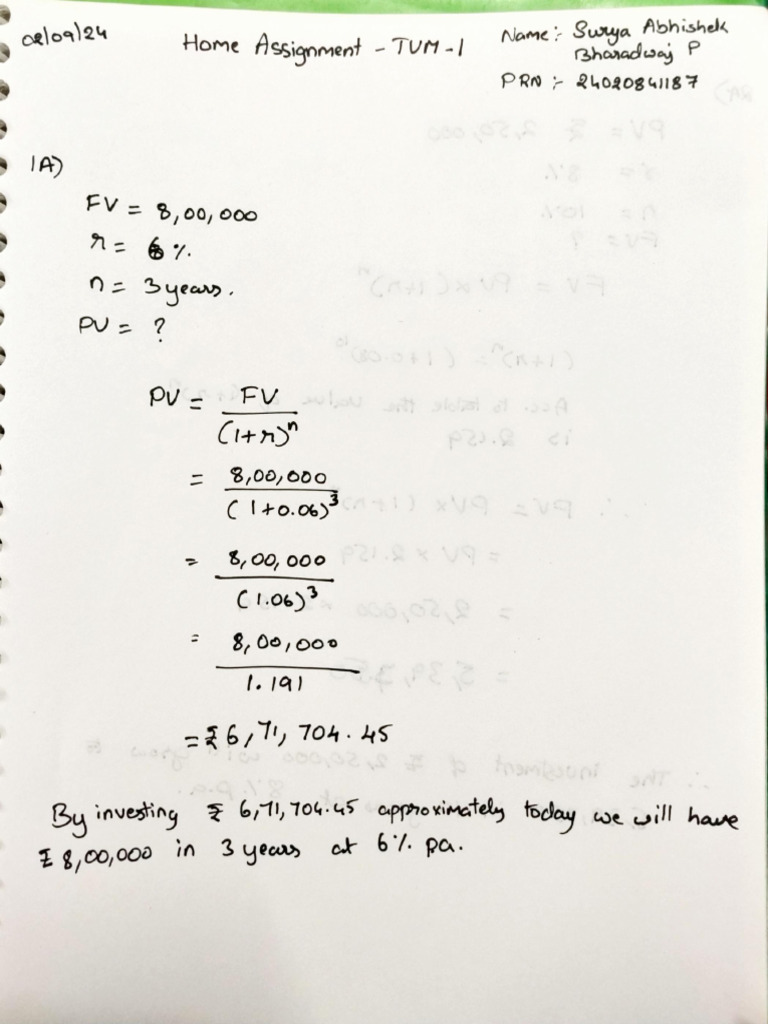 02/09/24
Home Assignment - TVM - 1
Name :- Surya Abhishek
Bharadwaj P
PRN :- 24020841187
1A)
FV = 8,00,000
r = 6 %.
n = 3 years.
PV = ?
PV = FV
(1+r)^n
= 8,00,000
(1+0.06)^3
= 8,00,000
(1.06)^3
= 8,00,000
1.191
= ₹ 6,71,704.45
By investing ₹ 6,71,704.45 approximately today we will have
₹ 8,00,000 in 3 years at 6% pa.